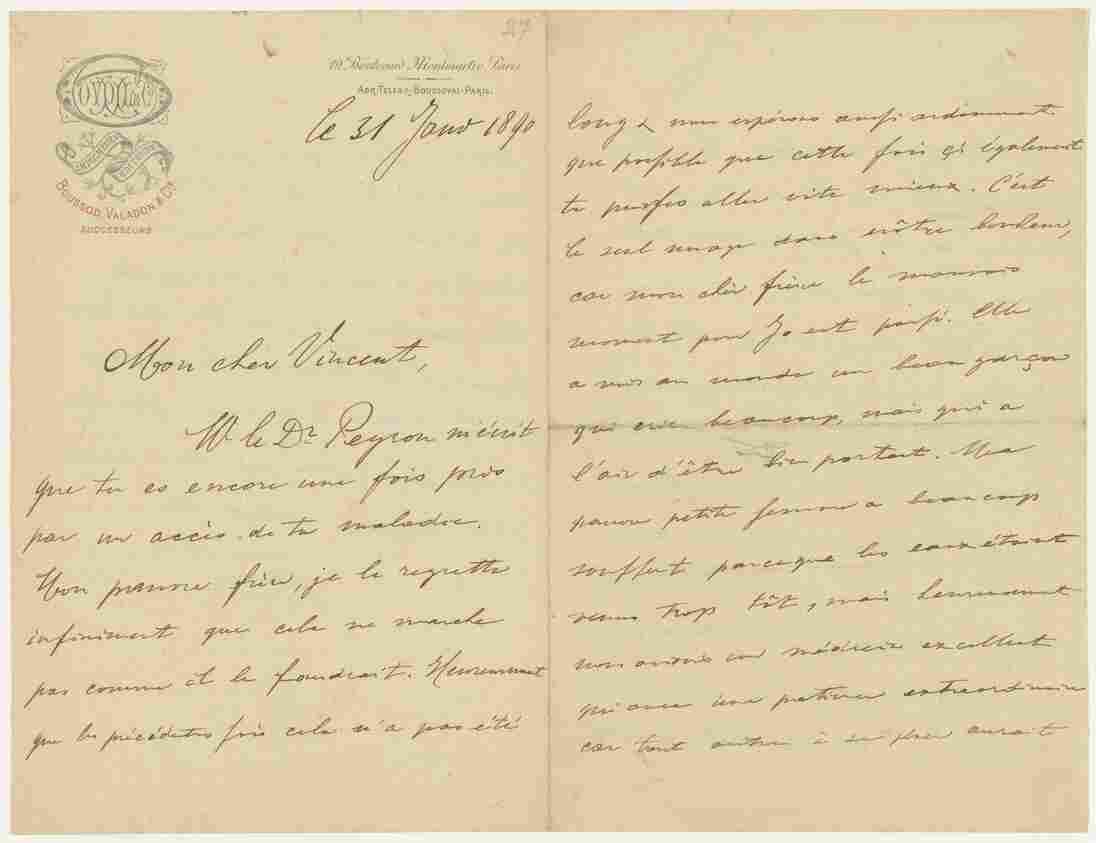 27
GOUPIL & Cie
BOUSSOD, VALADON & Cie
SUCCESSEURS
19 Boulevard Montmartre Paris
ADR. TELEG: BOUSSOVAL-PARIS.
le 31 Janv 1890
Mon cher Vincent,
M. le Dr Peyron m'écrit
que tu es encore une fois pris
par un accès de ta maladie.
Mon pauvre frère, je le regrette
infiniment que cela ne marche
pas comme il le faudrait. Heureusement
que les précédentes fois cela n'a pas été
long & nous espérons aussi ardemment
que possible que cette fois çi également
tu puisses aller vite mieux. C'est
le seul nuage dans nôtre bonheur,
car mon cher frère le mauvais
moment pour Jo est passé. Elle
a mis au monde un beau garçon
qui crie beaucoup, mais qui a
l'air d'être bien portant. Ma
pauvre petite femme a beaucoup
souffert parceque les eaux étaient
venus trop tôt, mais heureusement
nous avions un médecin excellent
qui avec une patience extraordinaire
car tout autre à sa place aurait